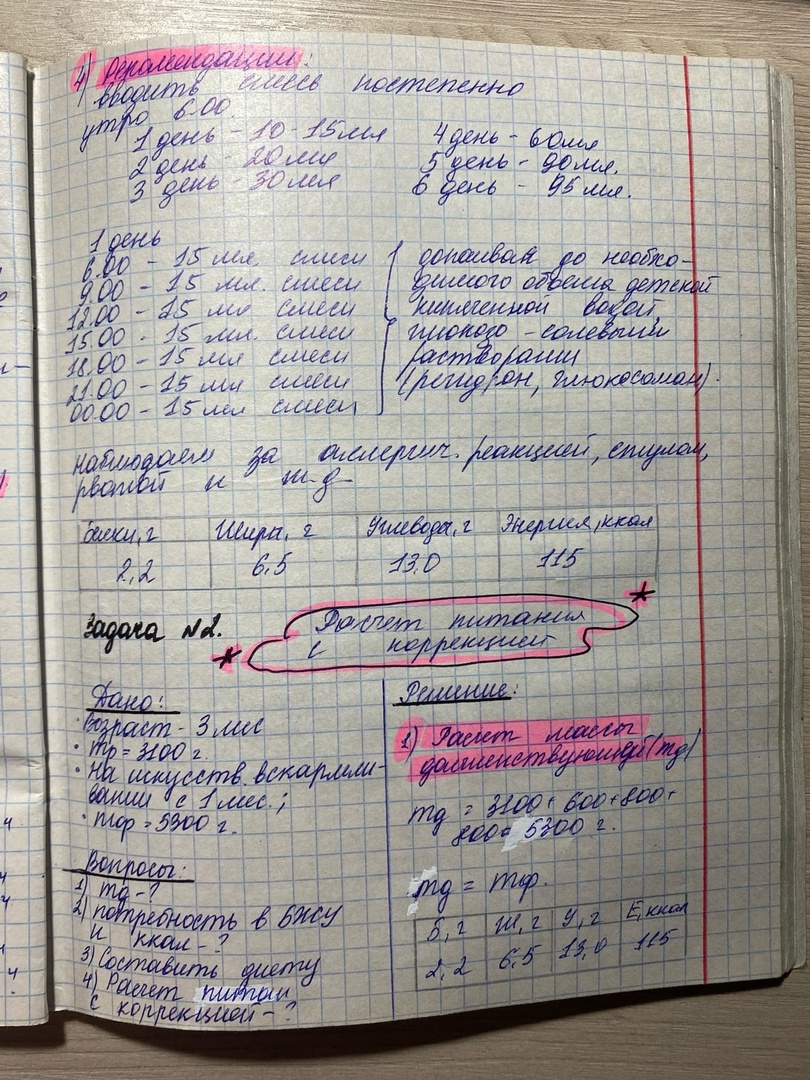 4) Рекомендации:
вводить смесь постепенно
утро 6.00.
1 день - 10-15 мл
2 день - 20 мл
3 день - 30 мл
4 день - 60 мл
5 день - 90 мл.
6 день - 95 мл.
1 день
6.00 - 15 мл смеси
9.00 - 15 мл. смеси
12.00 - 15 мл смеси
15.00 - 15 мл. смеси
18.00 - 15 мл смеси
21.00 - 15 мл смеси
00.00 - 15 мл смеси
допаиваем до необхо-
димого объема детской
кипяченной водой,
глюкозо-солевыми
растворами
(регидрон, глюкосолан).
наблюдаем за аллергич. реакцией, стулом,
рвотой и т.д.
Белки, г Жиры, г Углеводы, г Энергия, ккал
2,2 6,5 13,0 115
Задача №2.
Расчет питания
с коррекцией
Дано:
• Возраст - 3 мес
• mр = 3100 г.
• На искусств. вскармли-
вании с 1 мес.;
• mф = 5300 г.
Вопросы:
1) mд - ?
2) потребность в БЖУ
и ккал - ?
3) Составить диету
4) Расчет питан
с коррекцией - ?
Решение:
1) Расчет массы
долженствующей (mд)
mд = 3100 + 600 + 800 +
800 = 5300 г.
mд = mф.
Б, г Ж, г У, г Е, ккал
2,2 6,5 13,0 115